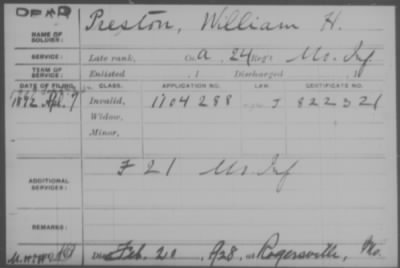 NAME OF SOLDIER: Preston, William H.
SERVICE: Late rank, Co. A, 24 Reg't Mo. Inf
TERM OF SERVICE: Enlisted , 1 Discharged , 1
DATE OF FILING. CLASS. APPLICATION NO. LAW. CERTIFICATE NO.
1892 Apl. 7 Invalid, 1104288 J 822321
Widow,
Minor,
ADDITIONAL SERVICES: F 21 Mo Inf
REMARKS:
Died Feb. 20, 1928, at Rogersville, Mo.